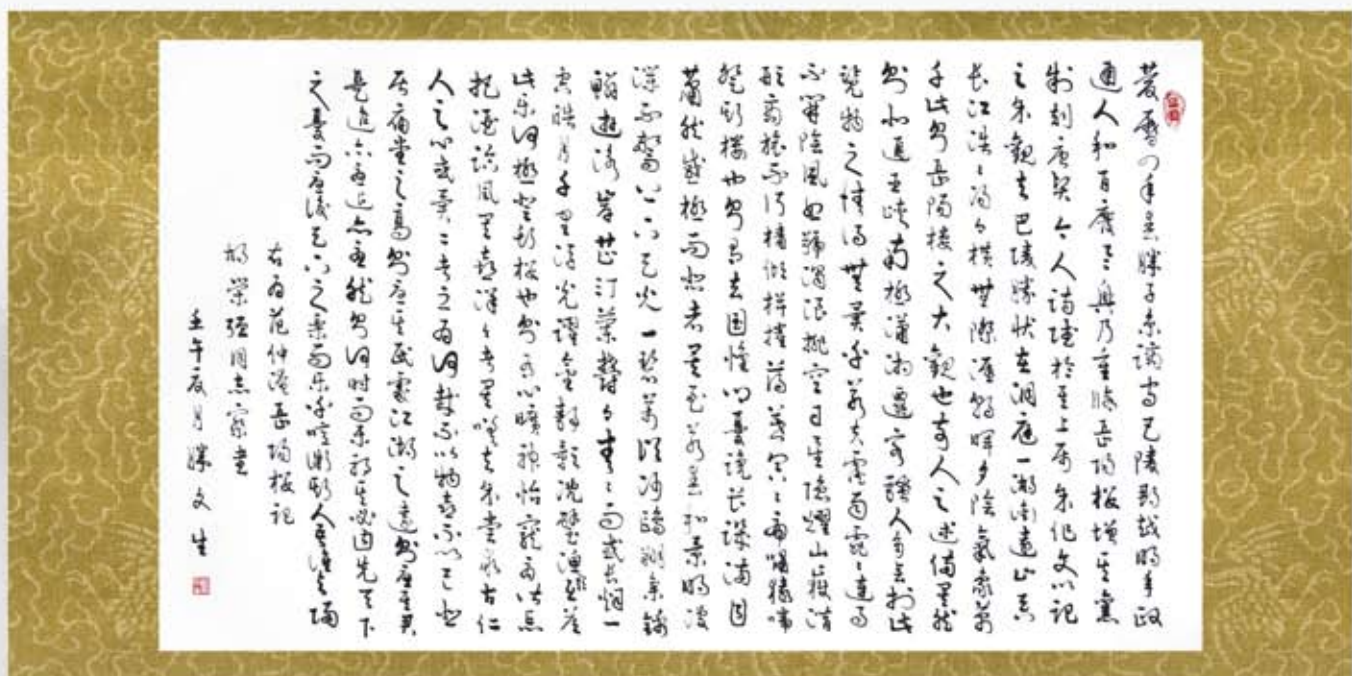 慶曆四年春滕子京謫守巴陵郡越明年政
通人和百廢具興乃重脩岳陽樓增其舊
制刻唐賢今人詩賦於其上屬余作文以記
之余觀夫巴陵勝狀在洞庭一湖銜遠山吞
長江浩々湯々橫無際涯朝暉夕陰氣象萬
千此則岳陽樓之大觀也前人之述備矣然
則北通巫峽南極瀟湘遷客騷人多會於此
覽物之情得無異乎若夫霪雨霏々連月
不開陰風怒號濁浪排空日星隱耀山嶽潛
形商旅不行檣傾楫摧薄暮冥々虎嘯猿啼
登斯樓也則有去國懷鄉憂讒畏譏滿目
蕭然感極而悲者矣至若春和景明波
瀾不驚上下天光一碧萬頃沙鷗翔集錦
鱗游泳岸芷汀蘭鬱々青々而或長煙一
空皓月千里浮光躍金靜影沉璧漁歌互答
此樂何極登斯樓也則有心曠神怡寵辱偕忘
把酒臨風其喜洋々者矣嗟夫余嘗求古仁
人之心或異二者之為何哉不以物喜不以己悲
居廟堂之高則憂其民處江湖之遠則憂其君
是進亦憂退亦憂然則何時而樂耶其必曰先天下
之憂而憂後天下之樂而樂乎噫微斯人吾誰與歸
右為范仲淹岳陽樓記
同志
壬午夏月滕文生